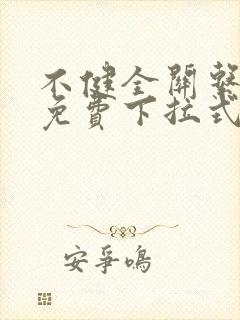 不健全關繫
免費下拉式
安爭鳴